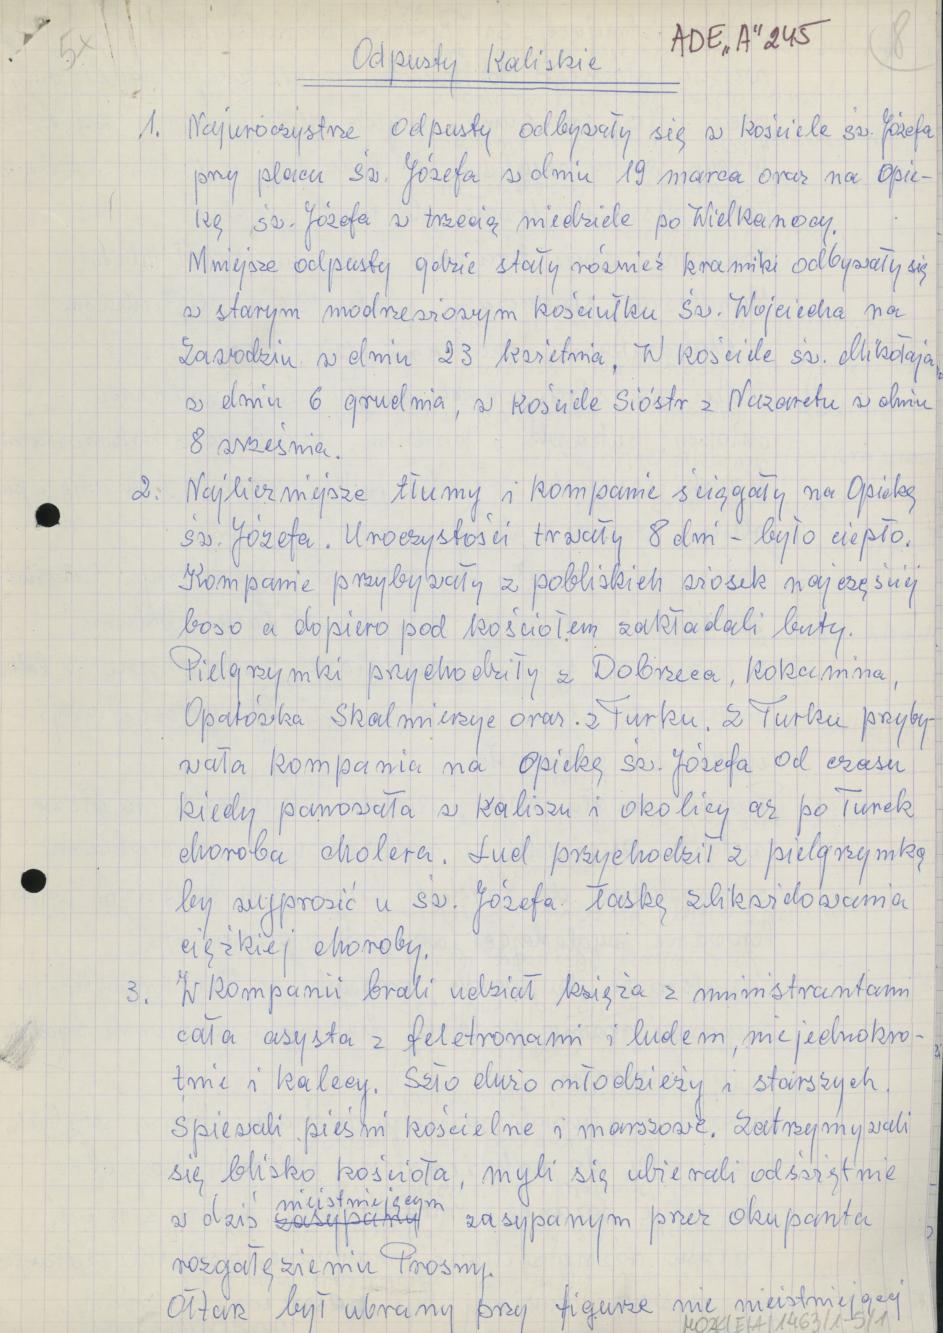 5x
ADE "A" 245
8
Odpusty Kaliskie
1. Najuroczystrze odpusty odbywały się w kościele św. Józefa
przy placu św. Józefa w dniu 19 marca oraz na opie-
kę św. Józefa w trzecią niedziele po Wielkanocy.
Mniejsze odpusty gdzie stały również kramiki odbywały się
w starym modrzewiowym kościułku św. Wojciecha na
Zawodziu w dniu 23 kwietnia. W kościele św. Mikołaja
w dniu 6 grudnia, w kościele Sióstr z Nazaretu w dniu
8 września.
2. Najliczniejsze tłumy i kompanie ściągały na Opiekę
św. Józefa. Uroczystości trwały 8 dni - było ciepło.
Kompanie przybywały z pobliskich wiosek najczęściej
boso a dopiero pod kościołem zakładali buty.
Pielgrzymki przychodziły z Dobrzeca, Kokanina,
Opatówka Skalmierzyc oraz z Turku. Z Turku przyby-
wała kompania na opiekę św. Józefa od czasu
kiedy panowała w Kaliszu i okolicy aż po Turek
choroba cholera. Lud przychodził z pielgrzymką
by wyprosić u św. Józefa łaskę zlikwidowania
ciężkiej choroby.
3. W kompanii brali udział księża z ministrantami
cała asysta z feletronami i ludem, niejednokro-
tnie i kalecy. Szło dużo młodzieży i starszych.
Śpiewali pieśni kościelne i marszowe. Zatrzymywali
się blisko kościoła, myli się ubierali odświętnie
w dziś zasypany nieistniejącym zasypanym przez okupanta
rozgałęzieniu Prosny.
Ołtarz był ubrany przy figurze nie nieistniejącej
MOZK/E/A/1463/1-5/1